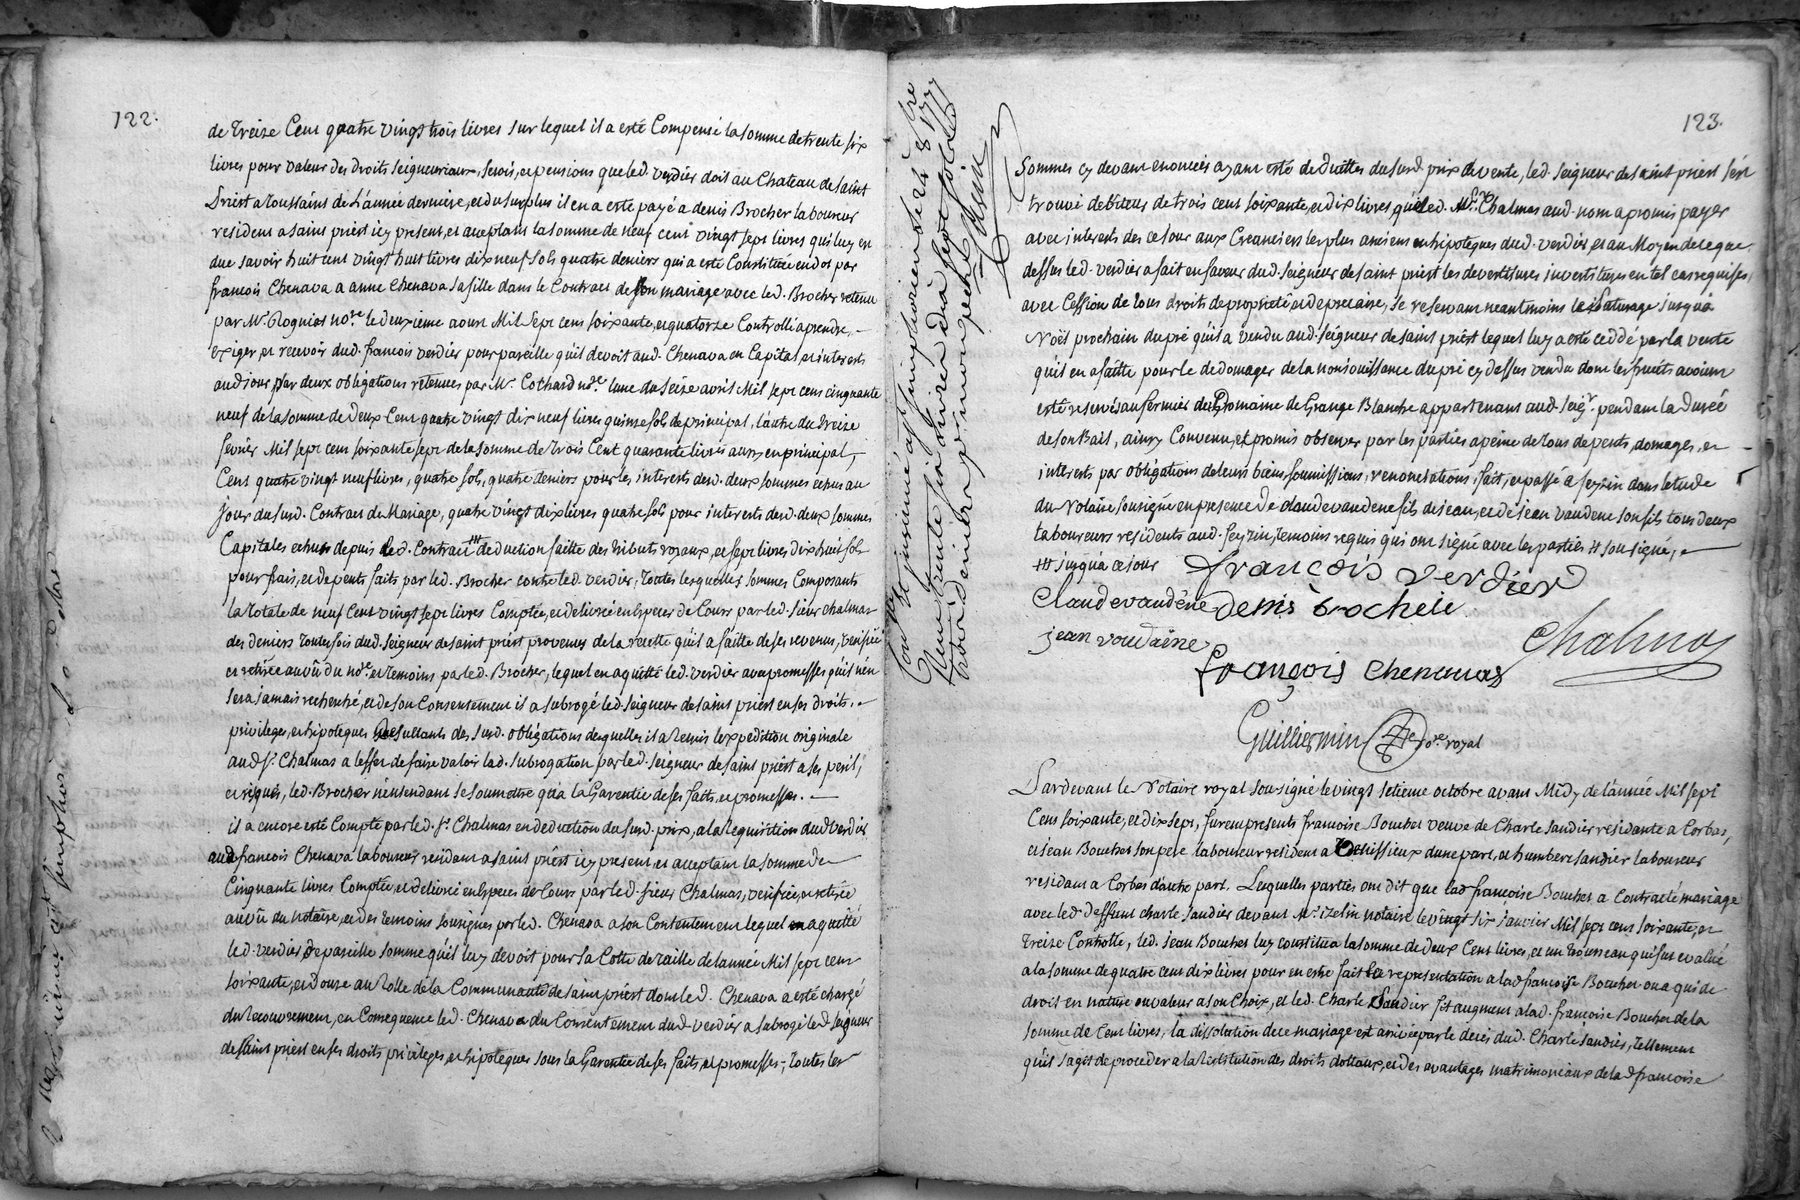 122.
de treize Cent quatre vingt trois livres sur lequel il a esté Compensé la somme de trente six
livres pour valeur des droits seigneuriaux, servis, et pensions que led. verdier doit au Chateau de saint
Priest a toussaints de L'année derniere, et du surplus il en a esté payé a denis Brocher laboureur
resident a saint priest icy present, et acceptant la somme de neuf cent vingt sept livres qui luy en
due savoir huit cent vingt huit livres dix neuf sols quatre deniers qui a esté Constituée en dot par
francois Chenava a anne Chenava sa fille dans le Contract de son mariage avec led. Brocher retenu
par Mr. Roguiat nore. le deuxieme aout Mil sept cens soixante, et quatorze Controllé a prendre,
exiger, et recevoir dud. francois verdier pour pareille qu'il devoit aud. Chenava en Capital, et interets
aud jour, par deux obligations retenues par Mr. Cochard nore. l'une du seize avril Mil sept cens cinquante
neuf de la somme de deux Cent quatre vingt dix neuf livres quinze sols de principal, l'autre du treize
fevrier Mil sept cens soixante sept de la somme de trois Cent quarante livres aussy en principal,
Cent quatre vingt neuf livres, quatre sols, quatre deniers pour les interets desd. deux sommes echus au
jour du susd. Contract de Mariage, quatre vingt dix livres quatre sols pour interets desd. deux sommes
Capitales echus depuis led. Contract # deduction faitte des tributs royaux, et sept livres dix huit sols
pour frais, et depents faits par led. Brocher contre led. verdier, toutes lesquelles sommes Composants
la totale de neuf Cent vingt sept livres Comptée, et delivrée en Especes de Cours par led. sieur chalmas
des deniers toutesfois dud. Seigneur de saint priest provenus de la recette qu'il a faitte de ses revenus, verifiée
et retirée au vû du nore. et temoins par led. Brocher, lequel en a quitté led. verdier avec promesses qu'il n'en
sera jamais recherché, et de son Consentement il a subrogé led. seigneur de saint priest en ses droits,
privileges, et hipoteques Resultants des susd. obligations desquelles il a remis l'expedition originale
aud sr. Chalmas a l'effet de faire valoir lad. subrogation par led. seigneur de saint priest a ses peril,
et risques, led. Brocher n'entendant se soumettre qu'a la Garentie de ses faits, et promesses.
il a encore esté Compté par led. sr. Chalmas en deduction du susd. prix, a la Requisition dud verdier
aud francois Chenava laboureur resident a saint priest icy present et acceptant la somme de
Cinquante livres Comptée, et delivrée en Especes de Cours par led. sieur Chalmas, verifiée, et retirée
au vû du notaire, et des temoins sousignes par led. Chenava a son Contentement lequel en a quitté
led. verdier de pareille somme qu'il luy devoit pour sa Cotte de taille de l'année Mil sept cens
soixante, et douze au Rolle de la Communauté de saint priest dont led. Chenava a esté chargé
du recouvrement, en Consequence led. Chenava du Consentement dud. verdier a subrogé led. seigneur
de saint priest en ses droits privileges, et hipoteques sous la Garentie de ses faits, et promesses, toutes les
123.
Sommes cy devant enoncées ayant esté deduittes du susd. prix de vente, led. seigneur de saint priest s'est
trouvé debiteur de trois cent soixante, et dix livres que led. Mr. Chalmas aud. nom a promis payer
avec interets des ce jour aux Creanciers les plus anciens en hipoteques dud. verdier, et au Moyen de ce que
dessus led. verdier a fait en faveur dud. seigneur de saint priest les devestitures investitures en tel cas requises,
avec Cession de tous droits de proprieté, et de precaire, se reservant neantmoins le Paturage jusqu'a
Noël prochain du pré qu'il a vendu aud. seigneur de saint priest lequel luy a esté ceddé par la vente
qu'il en a faitte pour le dedomager de la nonjouissance du pré cy dessus vendu dont les fruits avoient
esté reservés au fermier du Domaine de Grange Blanche appartenant aud. seigr. pendant la durée
de son Bail, ainsy Convenu, et promis observer par les parties a peine de tous depents, domages, et
interets par obligations de leurs biens, soumissions, renonciations, fait, et passé a seyzin dans l'etude
du Notaire sousigné en presence de claude vaudene fils de jean, et de jean vaudene son fils tous deux
laboureurs residents aud. seyzin, temoins requis qui ont signé avec les parties # sousigné,
# jusqu'à ce jour
francois verdier
Claude vaudéne
denis brocheir
jean voudaine
Chalmas
françois Chenavas
Guilliermin nore. royal
Pardevant le Notaire royal sousigné le vingt setieme octobre avant Midy de l'année Mil sept
Cens soixante, et dix sept, furent presents francoise Bouchet veuve de Charle Sandier residante a Corbas,
et jean Bouchet son pere laboureur resident a Venissieux d'une part, et humbert sandier laboureur
residant a Corbas d'autre part. Lesquelles parties ont dit que lad francoise Bouchet a Contracté mariage
avec led. deffunt charle sandier devant Mr. izelin notaire le vingt six janvier Mil sept cens soixante, et
treize Controllé, led. jean Bouchet luy constitua la somme de deux Cent livres, et un trousseau qui fut evalué
a la somme de quatre cent dix livres pour en estre fait la representation a lad francoise Bouchet ou a qui de
droit en nature ou valeur a son Choix, et led. Charle Sandier fit augment a lad. francoise Bouchet de la
somme de Cent livres, la dissolution de ce mariage est arrivée par le decès dud. Charle Sandier, tellement
qu'il s'agit de proceder a la Restitution des droits dottaux, et des avantages matrimoniaux de lad francoise